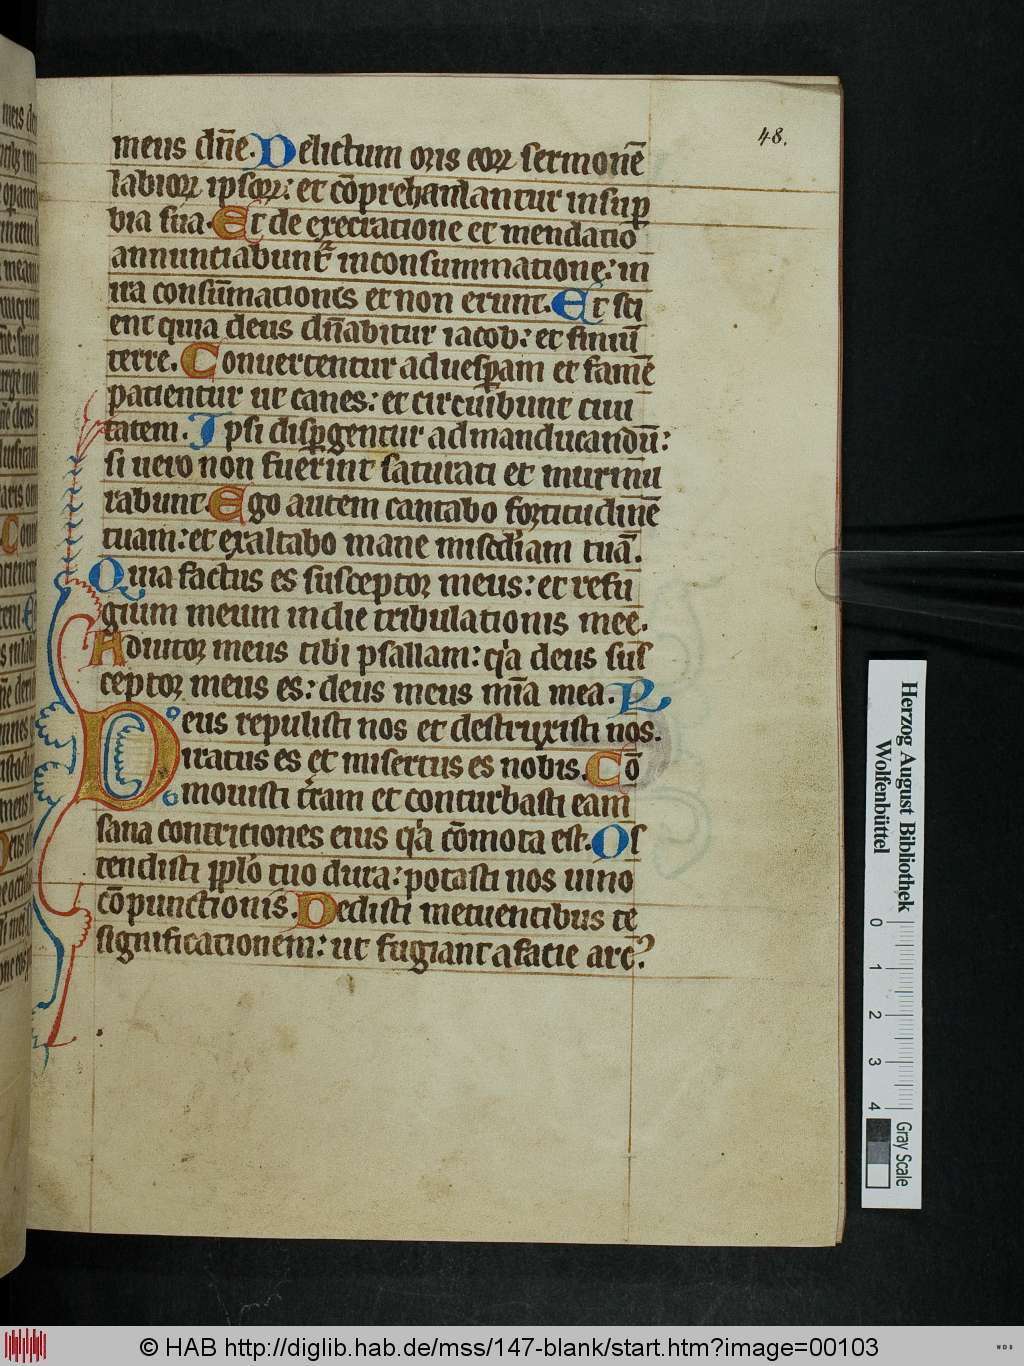 48.
meus dn̄e. Delictum oris eoꝝ sermonē
labioꝝ ipsoꝝ: et cōprehandantur in suꝑ
bia sua. Et de execratione et mendatio
annuntiabunt᷑ in consummatione: in
ira consūmationes et non erunt. Et sci
ent quia deus dn̄abitur iacob: et finiū
terre. Convertentur ad uesꝑam et famē
patientur ut canes: et circuibunt ciui
tatem. Ipsi disꝑgentur ad manducandū:
si uero non fuerint saturati et murmu
rabunt. Ego autem cantabo fortitudinē
tuam: et exaltabo mane miscdiam tuā.
Quia factus es susceptor meus: et refu
gium meum in die tribulationis mee.
Adiutor meus tibi psallam: qa deus sus
ceptor meus es: deus meus mīa mea. R
Deus repulisti nos et destruxisti nos.
iratus es et misertus es nobis. Cō
mouisti tram et conturbasti eam
sana contritiones eius qa cōmota est. Os
tendisti pplo tuo dura: potasti nos uino
cōpunctionis. Dedisti metuentibus te
significationem: ut fugiant a facie arc᷑
Herzog August Bibliothek
Wolfenbüttel
0 1 2 3 4
Gray Scale
© HAB http://diglib.hab.de/mss/147-blank/start.htm?image=00103